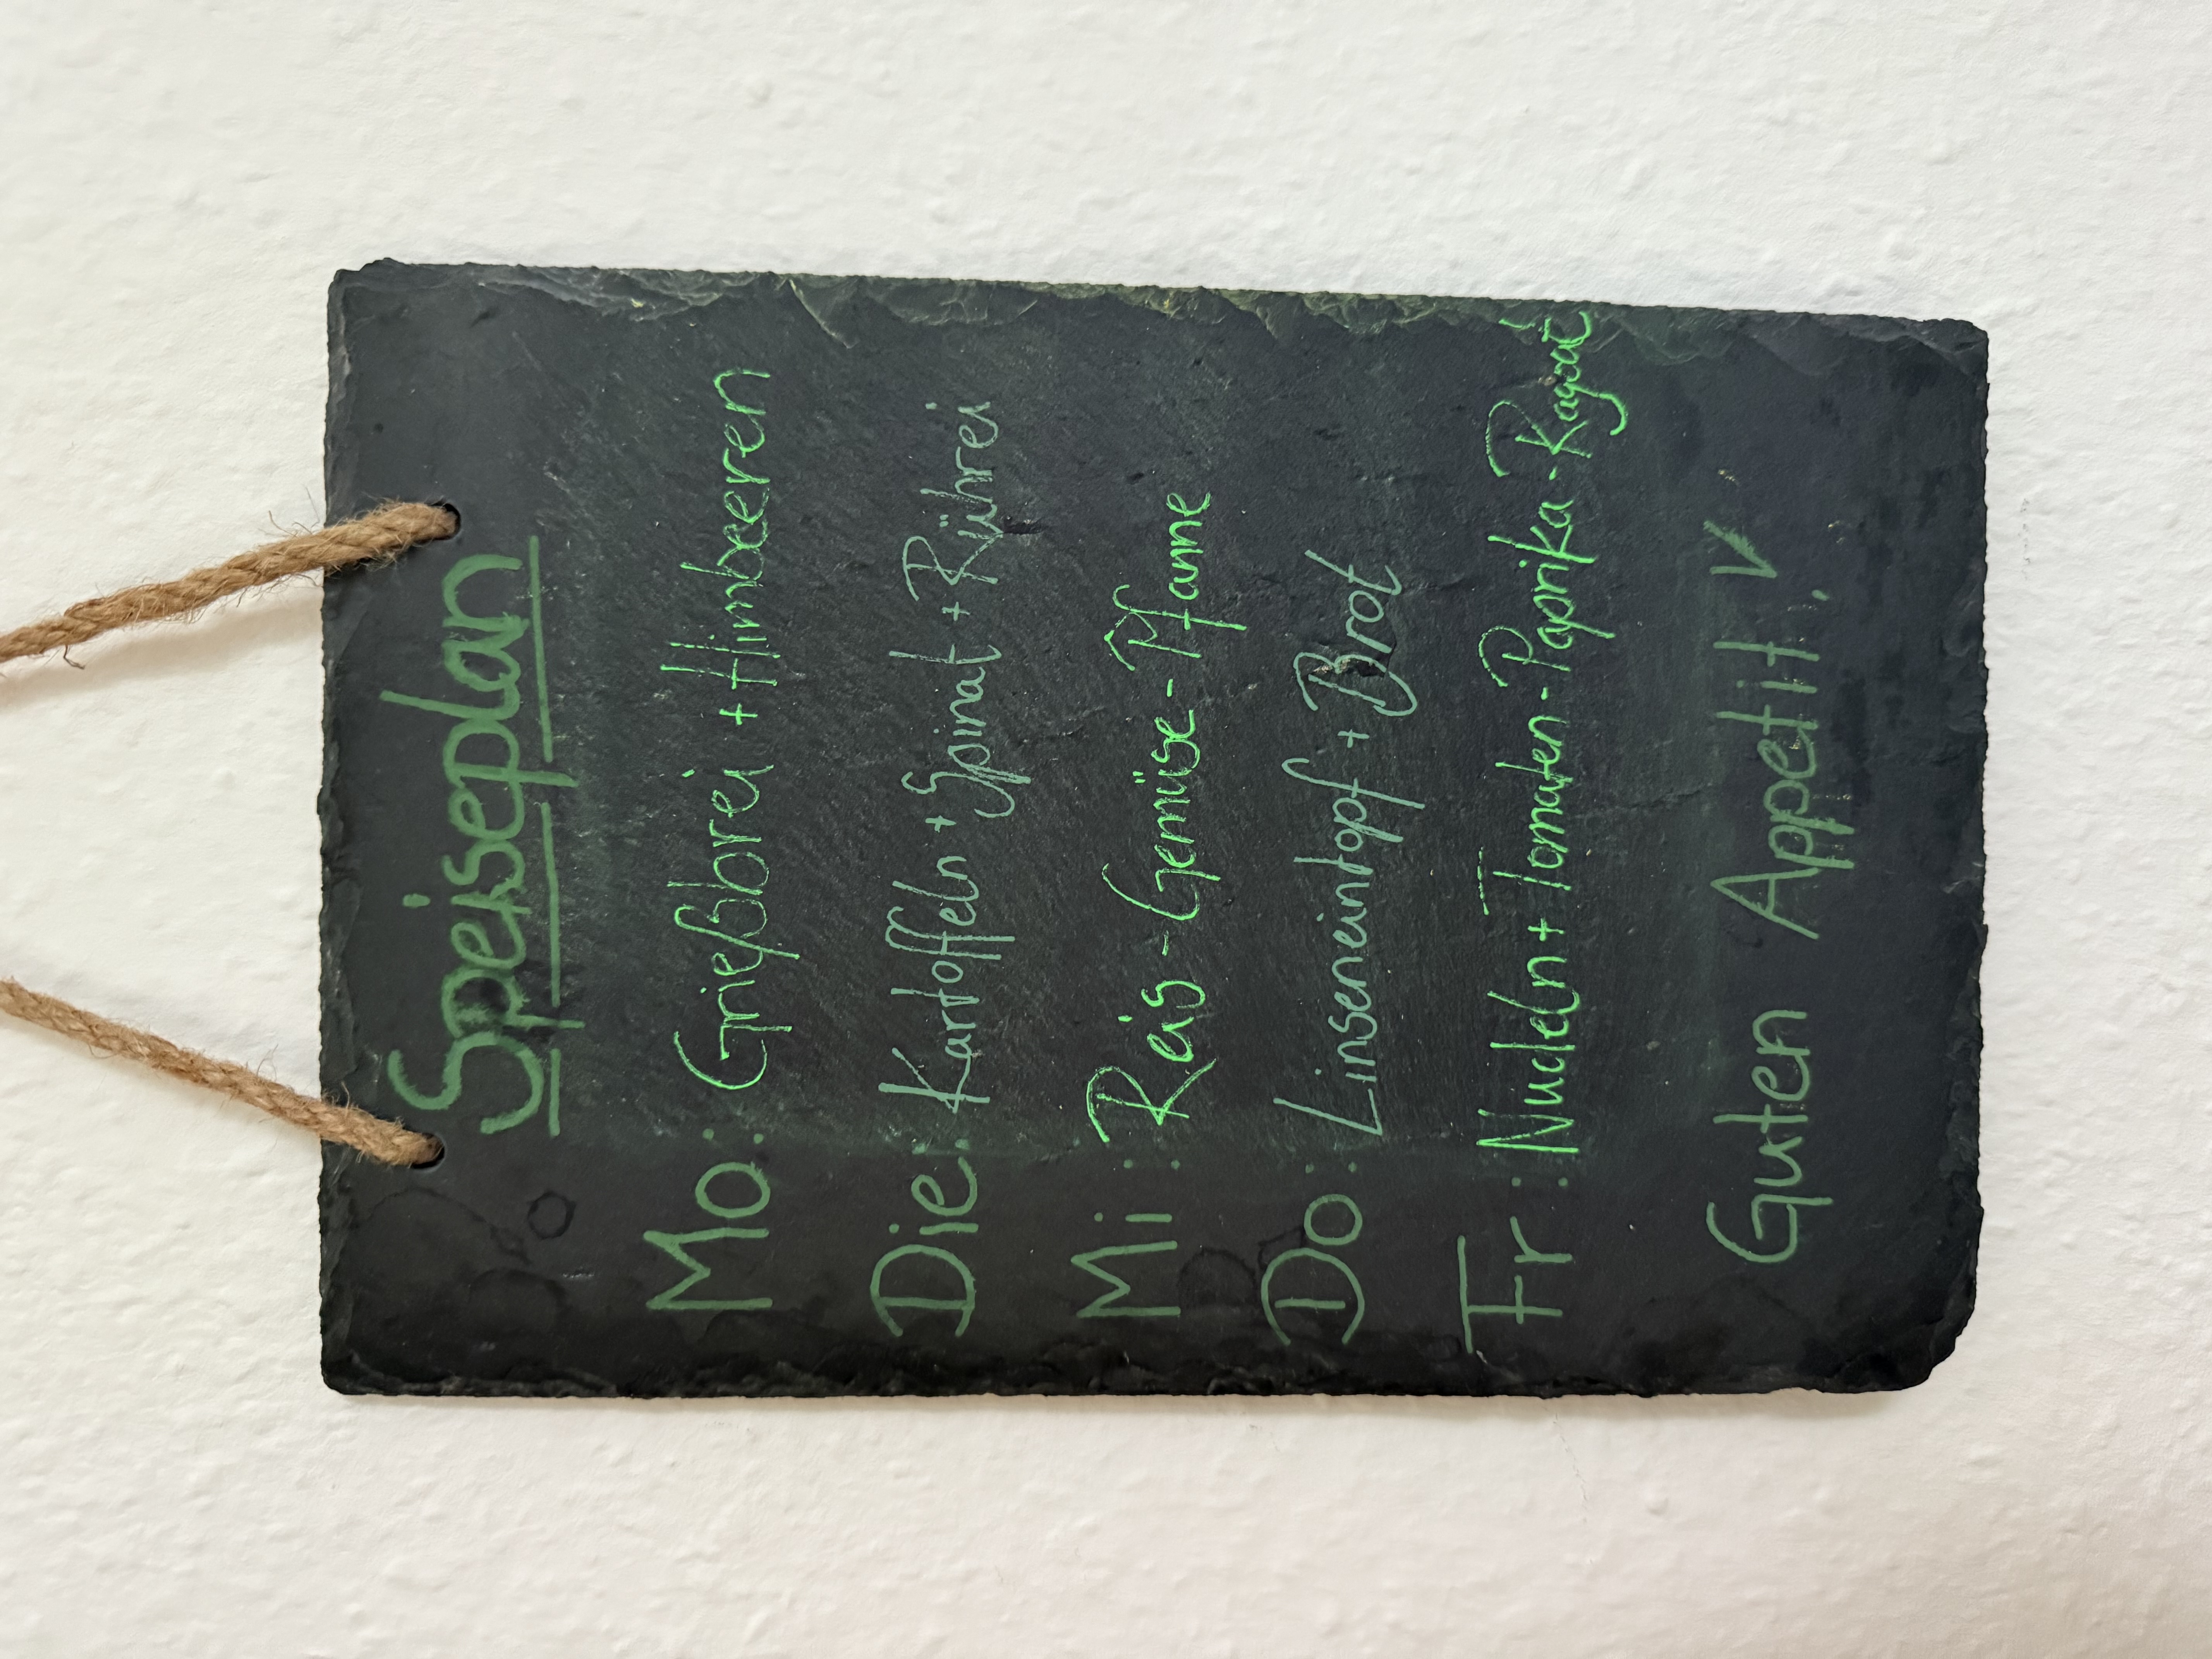 Speiseplan
Mo: Grießbrei + Himbeeren
Die: Kartoffeln + Spinat + Rührei
Mi: Reis-Gemüse-Pfanne
Do: Linseneintopf + Brot
Fr: Nudeln + Tomaten-Paprika-Ragout
Guten Appetit!